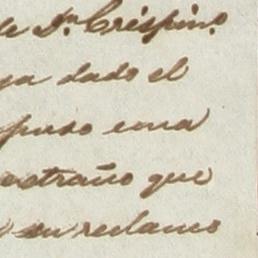 de Dn. Crispin.
ya dado el
puso una
estraño que
su reclamo